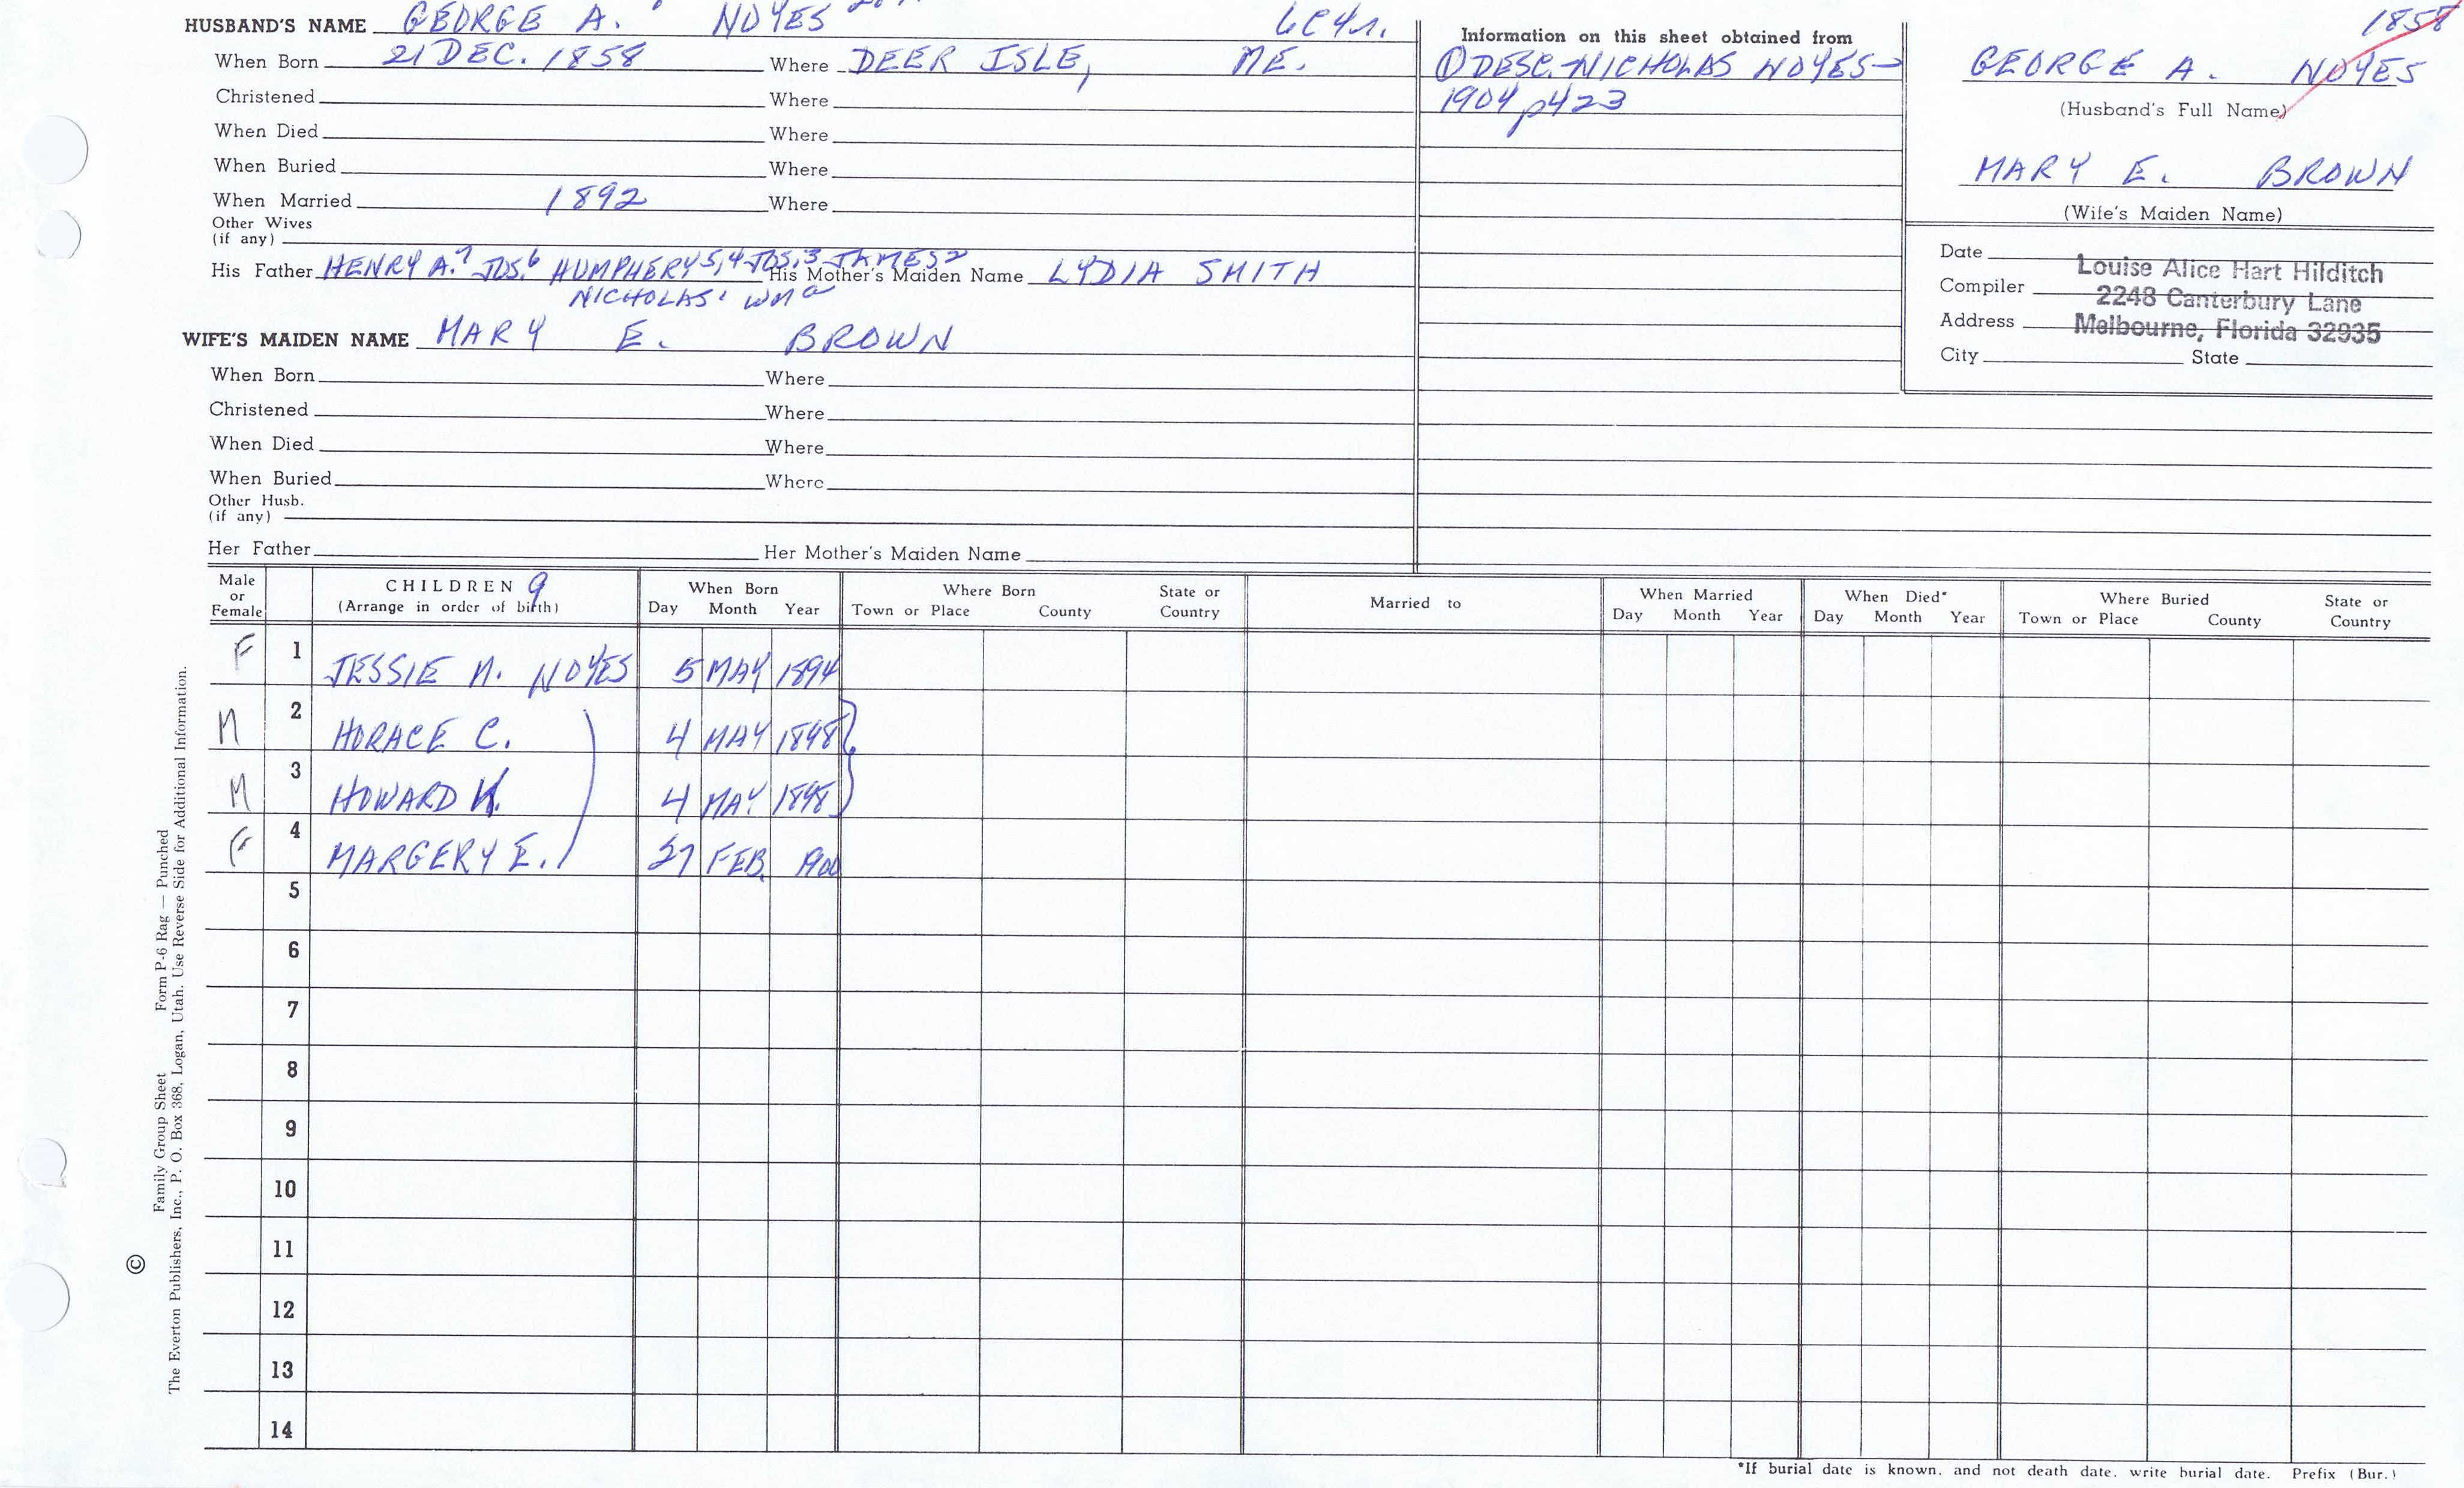 HUSBAND'S NAME GEORGE A. NOYES
When Born 21 DEC. 1858 Where DEER ISLE, ME.
Christened Where
When Died Where
When Buried Where
When Married 1892 Where
Other Wives
(if any)
His Father HENRY A.7 JOS.6 HUMPHERY5,4 JOS.3 JAMES2 His Mother's Maiden Name LYDIA SMITH
NICHOLAS1 WMa
WIFE'S MAIDEN NAME MARY E. BROWN
When Born Where
Christened Where
When Died Where
When Buried Where
Other Husb.
(if any)
Her Father Her Mother's Maiden Name
Information on this sheet obtained from
① DESC. NICHOLAS NOYES-
1904 p423
1858
GEORGE A. NOYES
(Husband's Full Name)
MARY E. BROWN
(Wife's Maiden Name)
Date
Louise Alice Hart Hilditch
Compiler
2248 Canterbury Lane
Address
Melbourne, Florida 32935
City State
Male or Female CHILDREN 9 (Arrange in order of birth) When Born Day Month Year Where Born Town or Place County State or Country Married to When Married Day Month Year When Died* Day Month Year Where Buried Town or Place County State or Country
F 1 JESSIE M. NOYES 5 MAY 1894
M 2 HORACE C. 4 MAY 1898
M 3 HOWARD K. 4 MAY 1898
F 4 MARGERY E. 27 FEB. 1900
5
6
7
8
9
10
11
12
13
14
*If burial date is known, and not death date, write burial date. Prefix (Bur.)
Family Group Sheet Form P-6 Rag — Punched
© The Everton Publishers, Inc., P. O. Box 368, Logan, Utah. Use Reverse Side for Additional Information.